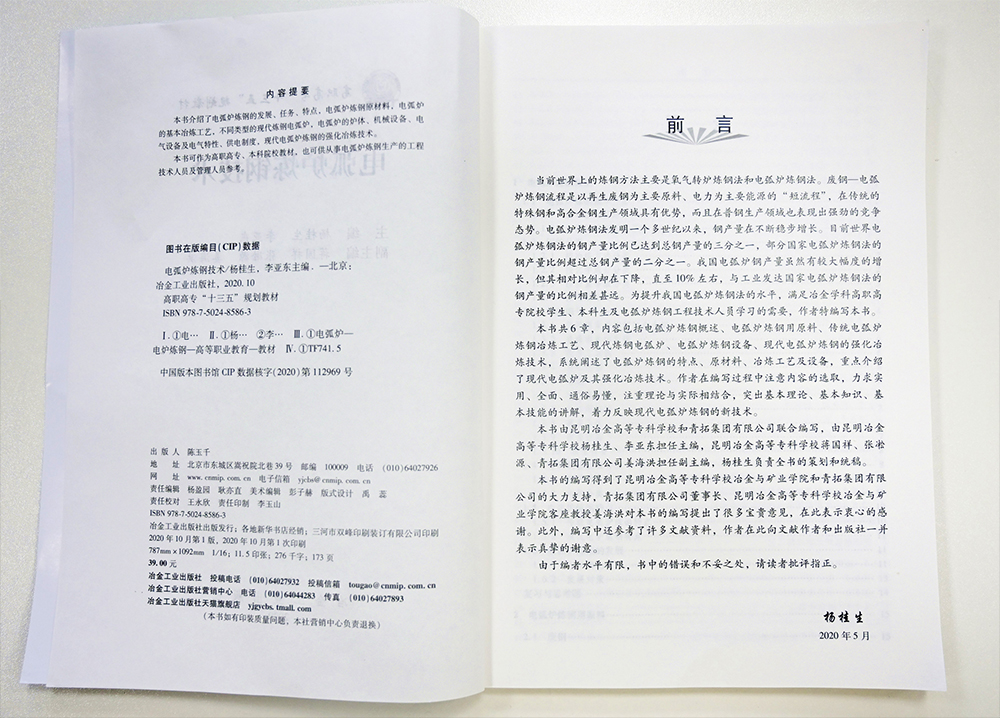 内容提要
本书介绍了电弧炉炼钢的发展、任务、特点，电弧炉炼钢原材料，电弧炉
的基本冶炼工艺，不同类型的现代炼钢电弧炉，电弧炉的炉体、机械设备、电
气设备及电气特性、供电制度，现代电弧炉炼钢的强化冶炼技术。
本书可作为高职高专、本科院校教材，也可供从事电弧炉炼钢生产的工程
技术人员及管理人员参考。
图书在版编目(CIP)数据
电弧炉炼钢技术/杨桂生，李亚东主编．—北京：
冶金工业出版社，2020.10
高职高专“十三五”规划教材
ISBN 978-7-5024-8586-3
Ⅰ.①电… Ⅱ.①杨… ②李… Ⅲ.①电弧炉—
电炉炼钢—高等职业教育—教材 Ⅳ.①TF741.5
中国版本图书馆 CIP 数据核字(2020)第 112969 号
出 版 人 陈玉千
地 址 北京市东城区嵩祝院北巷 39 号 邮编 100009 电话 (010)64027926
网 址 www.cnmip.com.cn 电子信箱 yjcbs@cnmip.com.cn
责任编辑 杨盈园 耿亦直 美术编辑 彭子赫 版式设计 禹 蕊
责任校对 王永欣 责任印制 李玉山
ISBN 978-7-5024-8586-3
冶金工业出版社出版发行；各地新华书店经销；三河市双峰印刷装订有限公司印刷
2020 年 10 月第 1 版，2020 年 10 月第 1 次印刷
787mm×1092mm 1/16；11.5 印张；276 千字；173 页
39.00 元
冶金工业出版社 投稿电话 (010)64027932 投稿信箱 tougao@cnmip.com.cn
冶金工业出版社营销中心 电话 (010)64044283 传真 (010)64027893
冶金工业出版社天猫旗舰店 yjgycbs.tmall.com
(本书如有印装质量问题，本社营销中心负责退换)
前 言
当前世界上的炼钢方法主要是氧气转炉炼钢法和电弧炉炼钢法。废钢—电弧
炉炼钢流程是以再生废钢为主要原料、电力为主要能源的“短流程”，在传统的
特殊钢和高合金钢生产领域具有优势，而且在普钢生产领域也表现出强劲的竞争
态势。电弧炉炼钢法发明一个多世纪以来，钢产量在不断稳步增长。目前世界电
弧炉炼钢法的钢产量比例已达到总钢产量的三分之一，部分国家电弧炉炼钢法的
钢产量比例超过总钢产量的二分之一。我国电弧炉钢产量虽然有较大幅度的增
长，但其相对比例却在下降，直至 10% 左右，与工业发达国家电弧炉炼钢法的
钢产量的比例相差甚远。为提升我国电弧炉炼钢法的水平，满足冶金学科高职高
专院校学生、本科生及电弧炉炼钢工程技术人员学习的需要，作者特编写本书。
本书共 6 章，内容包括电弧炉炼钢概述、电弧炉炼钢用原料、传统电弧炉炼
钢冶炼工艺、现代炼钢电弧炉、电弧炉炼钢设备、现代电弧炉炼钢的强化冶
炼技术，系统阐述了电弧炉炼钢的特点、原材料、冶炼工艺及设备，重点介绍
了现代电弧炉及其强化冶炼技术。作者在编写过程中注意内容的选取，力求实
用、全面、通俗易懂，注重理论与实际相结合，突出基本理论、基本知识、基
本技能的讲解，着力反映现代电弧炉炼钢的新技术。
本书由昆明冶金高等专科学校和青拓集团有限公司联合编写，由昆明冶金
高等专科学校杨桂生、李亚东担任主编，昆明冶金高等专科学校蒋国祥、张淞
源、青拓集团有限公司姜海洪担任副主编，杨桂生负责全书的策划和统稿。
本书的编写得到了昆明冶金高等专科学校冶金与矿业学院和青拓集团有限
公司的大力支持，青拓集团有限公司董事长、昆明冶金高等专科学校冶金与矿
业学院客座教授姜海洪对本书的编写提出了很多宝贵意见，在此表示衷心的感
谢。此外，编写中还参考了许多文献资料，作者在此向文献作者和出版社一并
表示真挚的谢意。
由于编者水平有限，书中的错误和不妥之处，请读者批评指正。
杨桂生
2020 年 5 月